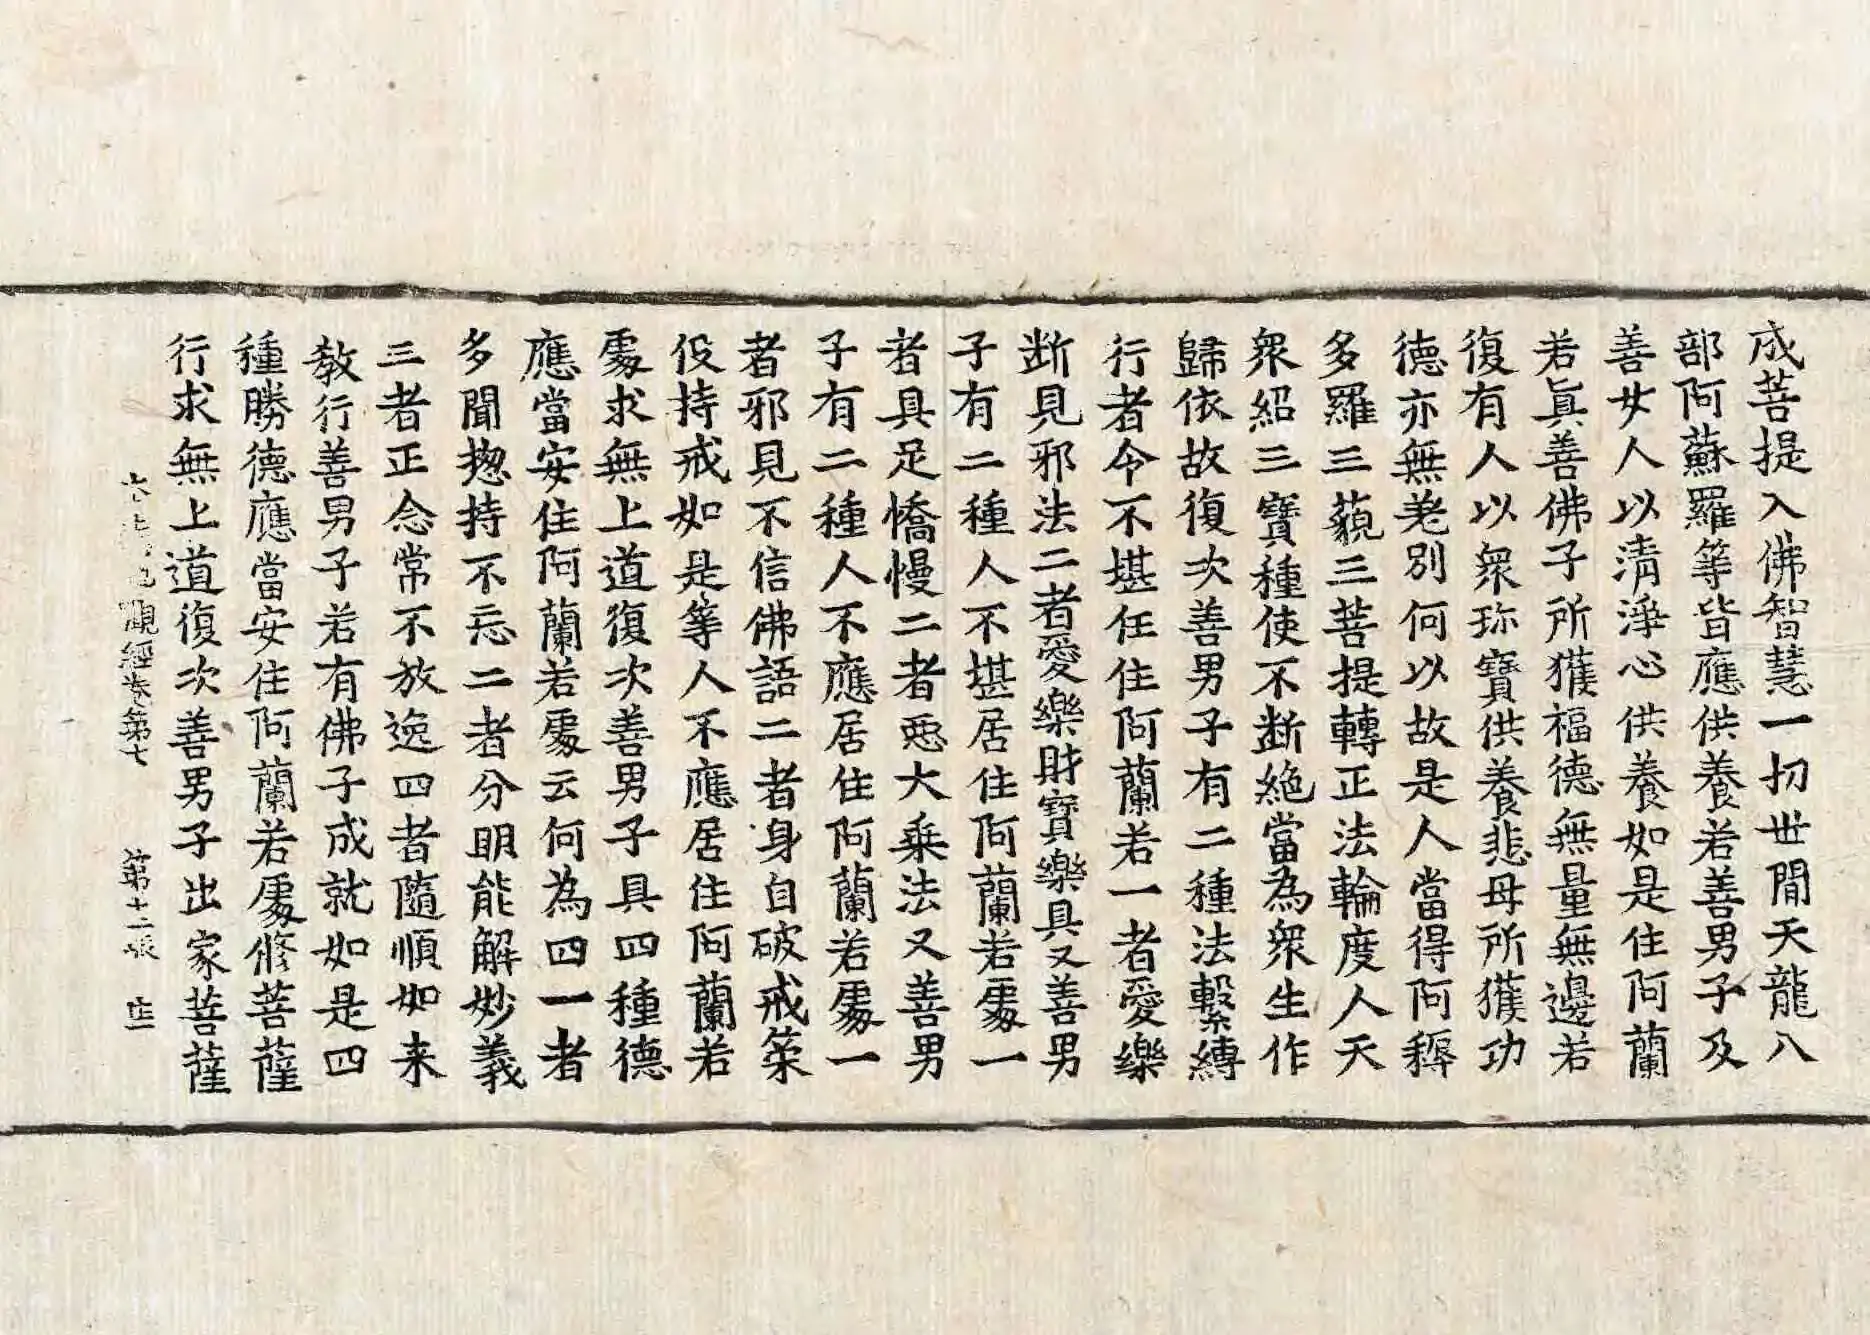 成菩提入佛智慧一切世閒天龍八
部阿蘇羅等皆應供養若善男子及
善女人以清淨心供養如是住阿蘭
若眞善佛子所獲福德無量無邊若
復有人以衆珎寶供養悲母所獲功
德亦無差別何以故是人當得阿耨
多羅三藐三菩提轉正法輪度人天
衆紹三寶種使不斷絶當為衆生作
歸依故復次善男子有二種法繫縛
行者令不堪任住阿蘭若一者愛樂
斷見邪法二者愛樂財寶樂具又善男
子有二種人不堪居住阿蘭若處一
者具足憍慢二者惡大乗法又善男
子有二種人不應居住阿蘭若處一
者邪見不信佛語二者身自破戒策
伇持戒如是等人不應居住阿蘭若
處求無上道復次善男子具四種德
應當安住阿蘭若處云何為四一者
多聞揔持不忘二者分明能解妙義
三者正念常不放逸四者隨順如来
教行善男子若有佛子成就如是四
種勝德應當安住阿蘭若處修菩薩
行求無上道復次善男子出家菩薩
地觀經卷第七 第十二張